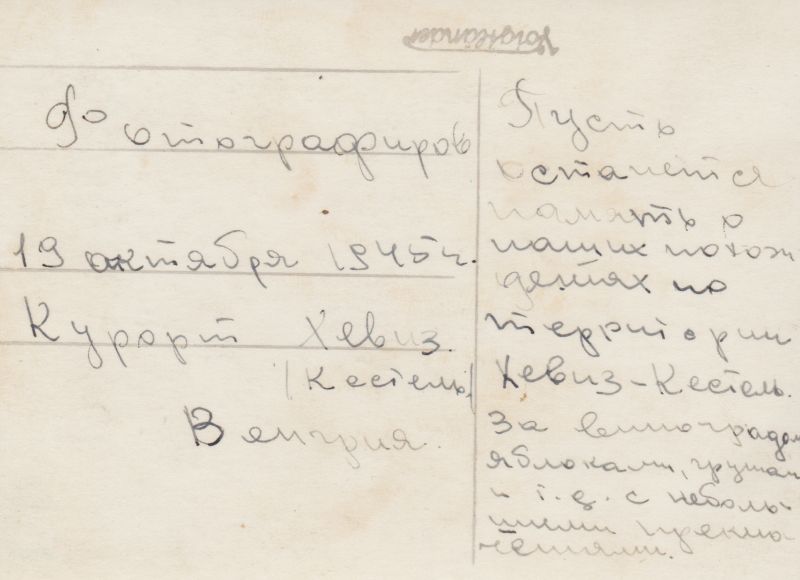 Voigtländer
Фотографиров
19 октября 1945 г.
Курорт Хевиз.
(Кестель)
Венгрия.
Пусть
останется
память о
наших похож
дениях по
территории
Хевиз-Кестель.
За виноградом
яблоками, грушам
и т.д. с неболь-
шими приклю
чениями.